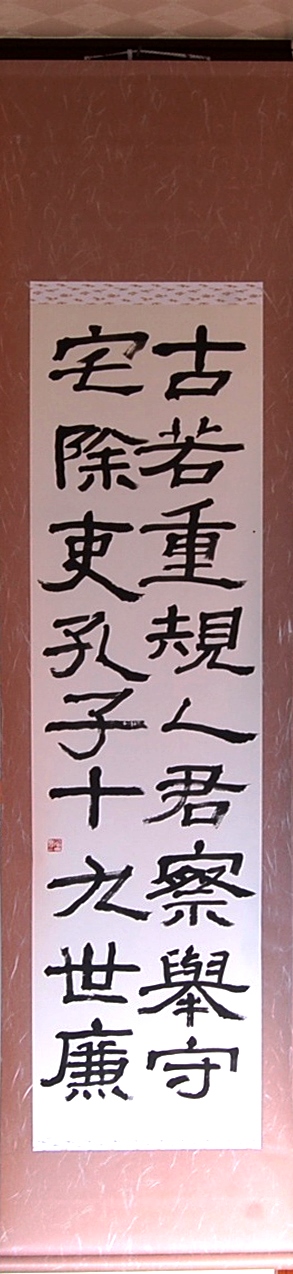 古若重規人君察舉守
宅除吏孔子十九世廉